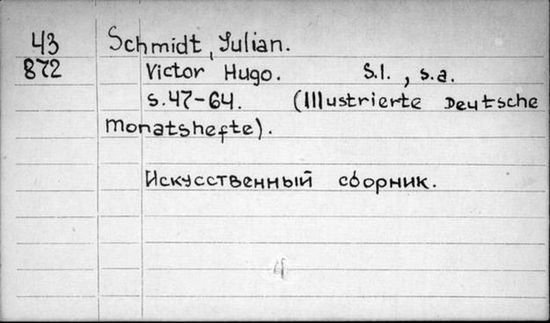 43 Schmidt, Julian.
872 Victor Hugo. S.l., s.a.
s.47-64. (Illustrierte Deutsche
Monatshefte).
Искусственный сборник.